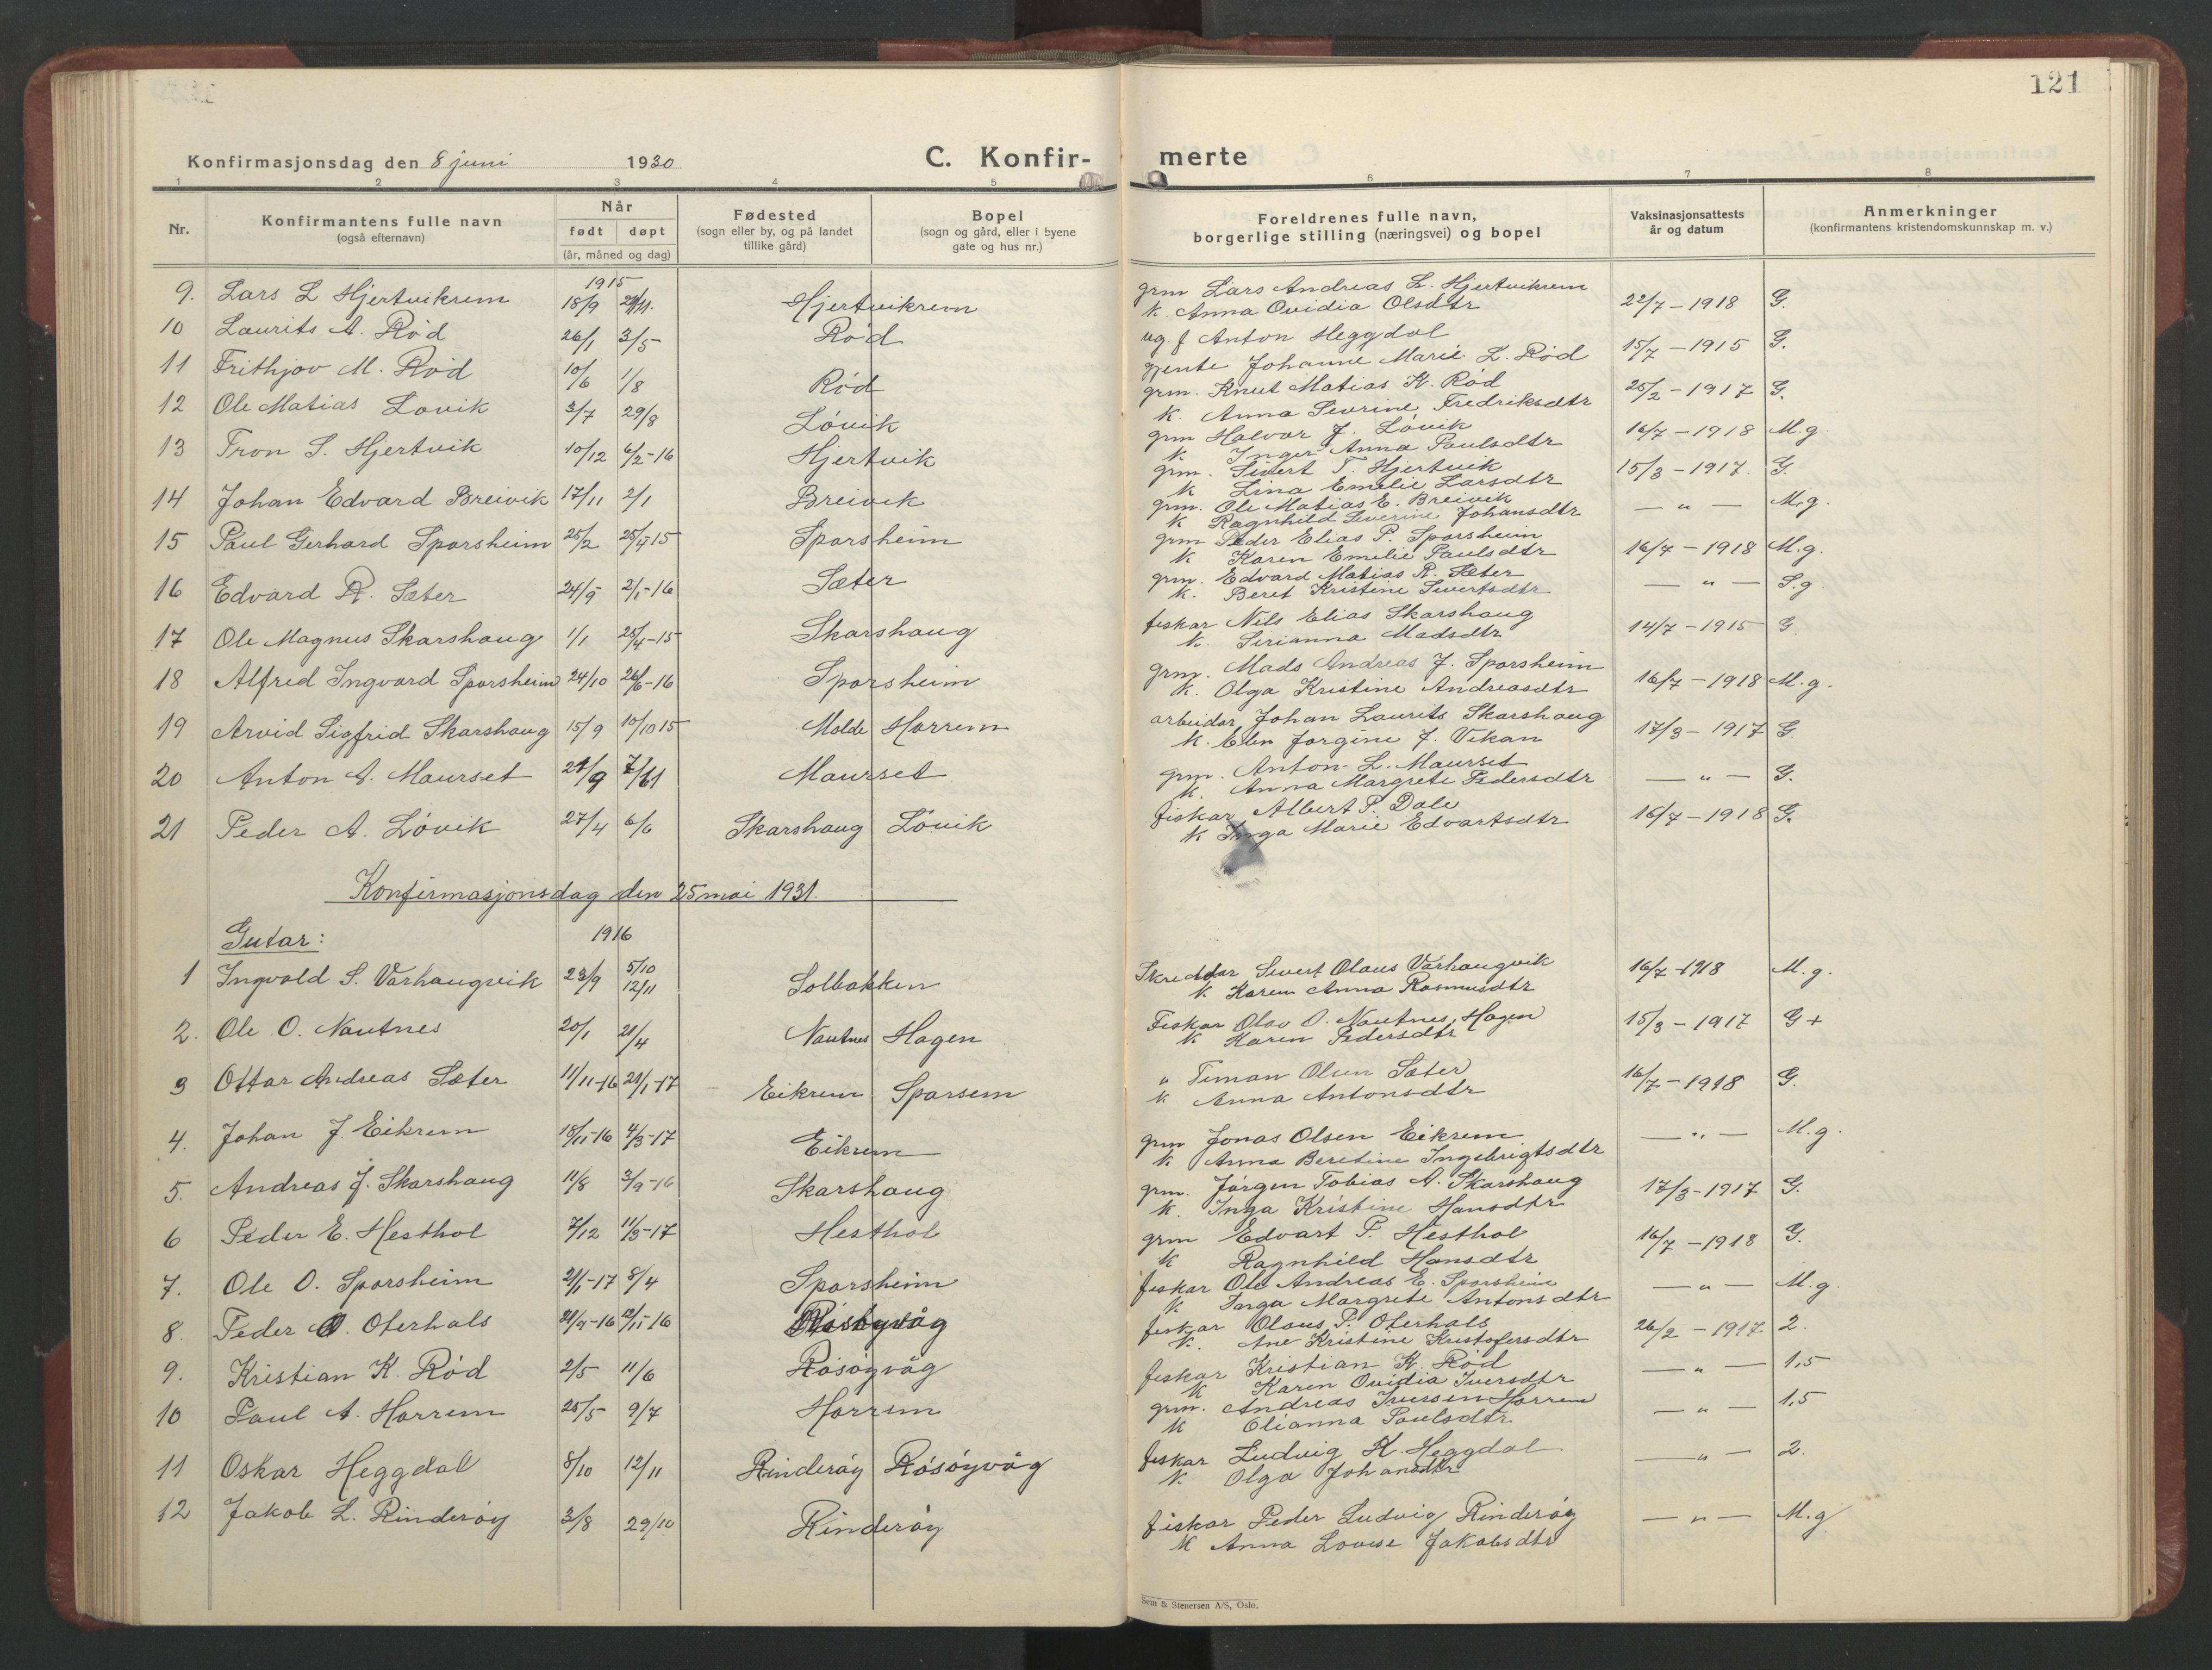 121
Konfirmasjonsdag den 8 juni 1930 C. Konfir- merte
1 2 3 4 5 6 7 8
Nr. Konfirmantens fulle navn (også efternavn) Når født døpt (år, måned og dag) Fødested (sogn eller by, og på landet tillike gård) Bopel (sogn og gård, eller i byene gate og hus nr.) Foreldrenes fulle navn, borgerlige stilling (næringsvei) og bopel Vaksinasjonsattests år og datum Anmerkninger (konfirmantens kristendomskunnskap m. v.)
1915
9. Lars L Hjertvikrem 18/9 Hjertvikrem grm Lars Andreas L. Hjertvikrem 22/7 - 1918 G.
K. Anna Ovidia Olsdtr
10 Laurits A. Rød 26/1 3/5 Rød ug. f Anton Heggdal 15/7 - 1915 G.
gjente Johanne Marie L. Rød
11 Frithjov M. Rød 10/6 1/8 Rød grm. Knut Matias K. Rød 25/2 - 1917 G.
K. Anna Sevrine Fredriksdtr
12 Ole Matias Lovik 3/7 29/8 Lóvik grm Halvor J. Lóvik 16/7 - 1918 M.g.
K. Inger Anna Paulsdtr
13 Tron S. Hjertvik 10/12 6/2-16 Hjertvik grm. Sivert T. Hjertvik 15/3 - 1917. G.
K Lina Emelie Larsdtr
14 Johan Edvard Breivik 17/11 2/1 Breivik grm. Ole Matias E. Breivik — " — M.g.
K Ragnhild Severine Johansdtr
15 Paul Gerhard Sporsheim 25/2 25/4 15 Sporsheim grm Peder Elias P. Sporsheim 16/7 - 1918 M.g.
K Karen Emelie Paulsdtr
16 Edvard R. Sæter 24/9 2/1-16 Sæter grm. Edvard Matias R. Sæter — " — S.g.
K. Beret Kristine Sivertsdtr
17 Ole Magnus Skarshaug 1/1 25/4-15 Skarshaug fiskar Nils Elias Skarshaug 14/7 - 1915 G.
K. Serianna Madsdtr
18 Alfred Ingvard Sporsheim 24/10 26/6-16 Sporsheim grm. Mads Andreas J. Sporsheim 16/7 - 1918 M.g.
K. Olga Kristine Andreasdtr
19 Arvid Sigfrid Skarshaug 15/9 10/10 15 Molde Harrem arbeidar Johan Laurits Skarshaug 17/3 - 1917 G.
K. Elen Jorgine J. Vikan
20 Anton A. Maurset Maurset grm. Anton L. Maurset — " — G.
K. Anna Margrete Pedersdtr
21 Peder A. Lóvik 27/4 6/6 Skarshaug Lóvik fiskar Albert P. Dale 16/7 - 1918 G.
K Inga Marie Edvartsdtr
Konfirmasjonsdag den 25 mai 1931.
Gutar: 1916
1 Ingvald S. Varhaugvik 23/9 5/10 12/11 Solbakken Skreddar Sivert Olaus Varhaugvik 16/7 - 1918 M.g.
K. Karen Anna Rasmusdtr
2. Ole O. Nautnes 20/1 21/4 Nautnes Hagen Fiskar Olav O. Nautnes, Hagen 15/3 - 1917 G +
K Karen Pedersdtr
3 Ottar Andreas Sæter 11/11-16 21/1-17 Eikrem Sparsem " Timan Olsen Sæter 16/7 - 1918 G.
K. Anna Antonsdtr
4. Johan J. Eikrem 18/11-16 4/3-17 Eikrem grm Jonas Olsen Eikrem — " — M.g.
K. Anna Beretine Ingebrigtsdtr
5. Andreas J. Skarshaug 11/8 3/9-16 Skarshaug grm. Jørgen Tobias A. Skarshaug 17/3-1917 G.
K. Inga Kristine Hansdtr
6 Peder E. Hesthol 7/12 11/3-17 Hesthol grm Edvart P. Hesthol 16/7 - 1918 G.
K Ragnhild Hansdtr
7. Ole O. Sporsheim 21/1-17 8/4 Sporsheim fiskar Ole Andreas E. Sporsheim — " — M.g.
K Inga Margrete Antonsdtr
8. Peder O. Oterhals fiskar Olaus P. Oterhals 26/2 - 1917 2.
K. Ane Kristine Kristofersdtr
9. Kristian K. Rød 2/5 11/6 Rósóyvåg fiskar Kristian K. Rød — " — 1,5
K Karen Ovidia Iversdtr
10 Paul A. Harrem 25/5 9/7 Harrem grm. Andreas Iversen Harrem — " — 1,5
K Olianna Paulsdtr.
11 Oskar Heggdal 8/10 12/11 Rinderóy Rósóyvåg fiskar Ludvig K. Heggdal — " — 2.
K. Olga Johansdtr
12 Jakob L. Rinderóy 3/8 29/10 Rinderóy fiskar Peder Ludvig Rinderóy — " — M.g
K Anna Lovise Jakobsdtr
Sem & Stenersen A/S, Oslo.